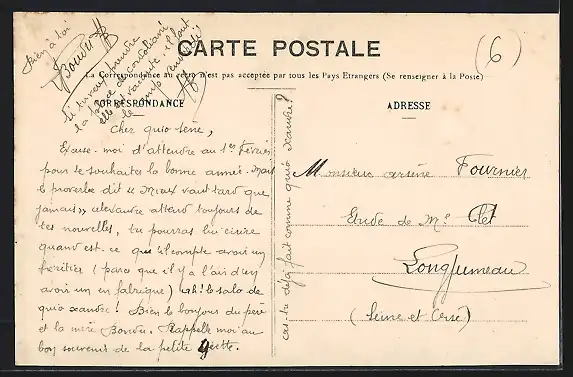 Bien à toi
Bourdu
Si tu veux prendre
la place du consolant
elle est vacante. il faut
le temps
(6)
CARTE POSTALE
La Correspondance au recto n'est pas acceptée par tous les Pays Etrangers (Se renseigner à la Poste)
CORRESPONDANCE
ADRESSE
Cher quio sène,
Excuse-moi d'attendre au 1er Février
pour te souhaiter la bonne année. Mais
le proverbe dit « Mieux vaut tard que
jamais » alexandre attend toujours de
tes nouvelles, tu pourras lui écrire
quand est-ce que il compte avoir un
héritier (parce que il y a l'air d'en
avoir un en fabrique) ah! le salo de
quio xandre! Bien le bonjour du père
et la mère Bourdu. Rappelle moi au
bon souvenir de la petite
as-tu déjà fait comme quio xandre?
Monsieur arsène Fournier
Etude de Me Clet
Longjumeau
(Seine et Oise)